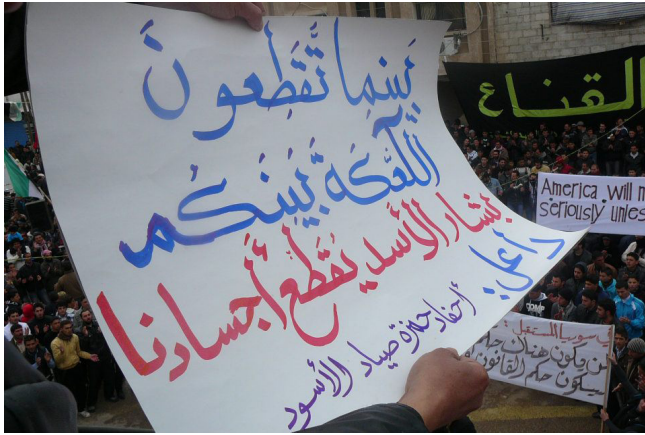 بَينِما تُقَطِعونَ
الكَعكَة بَينَكُم
بشار الأسد يُقَطع أجسادنا
داعل:
أحفاد حمزة صياد الأسود
القناع
America will n
seriously unles
سوريا المستقبل:
يكون هناك حكم
سيكون حكم القانون